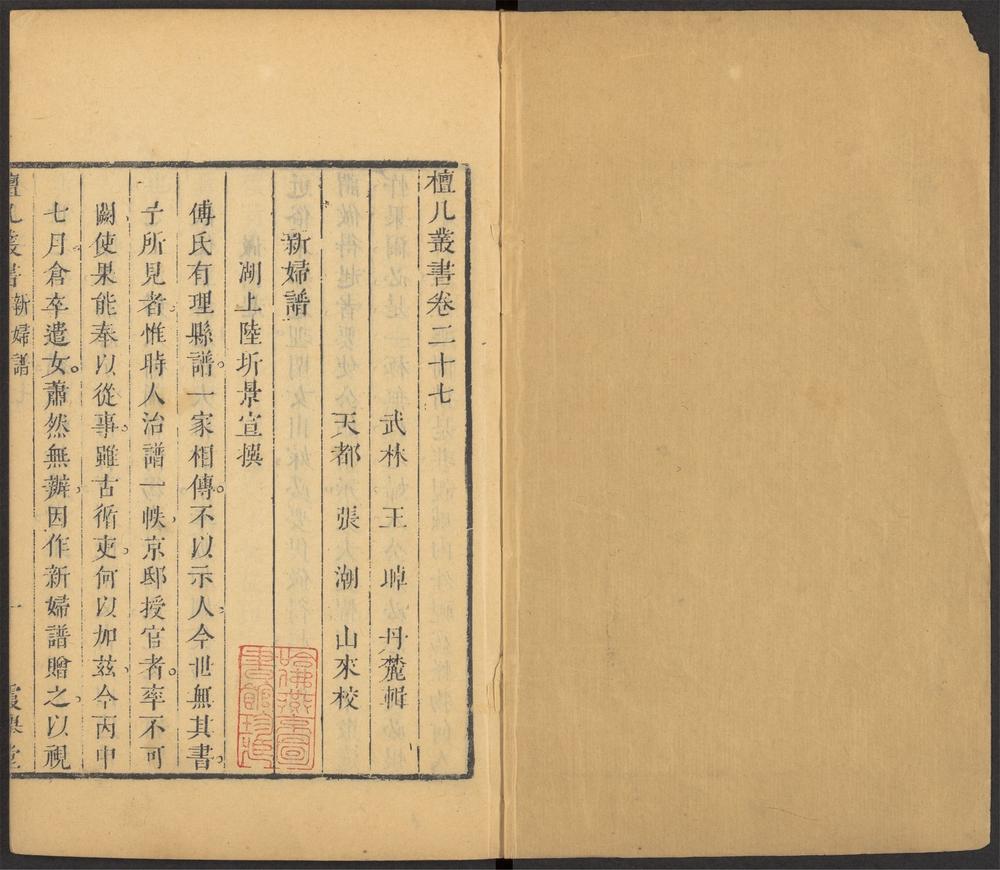 檀几叢書卷二十七
武林 王晫 丹麓輯
天都 張潮 山來校
新婦譜
湖上陸圻景宣撰
傅氏有理縣譜。一家相傳。不以示人。今世無其書。
予所見者。惟時人治譜一帙。京邸授官者。率不可
闕。使果能奉以從事。雖古循吏。何以加茲。今丙申
七月。倉卒遣女。蕭然無辦。因作新婦譜贈之。以視
檀几叢書 新婦譜 一 霞舉堂
哈佛燕京圖書館珍藏